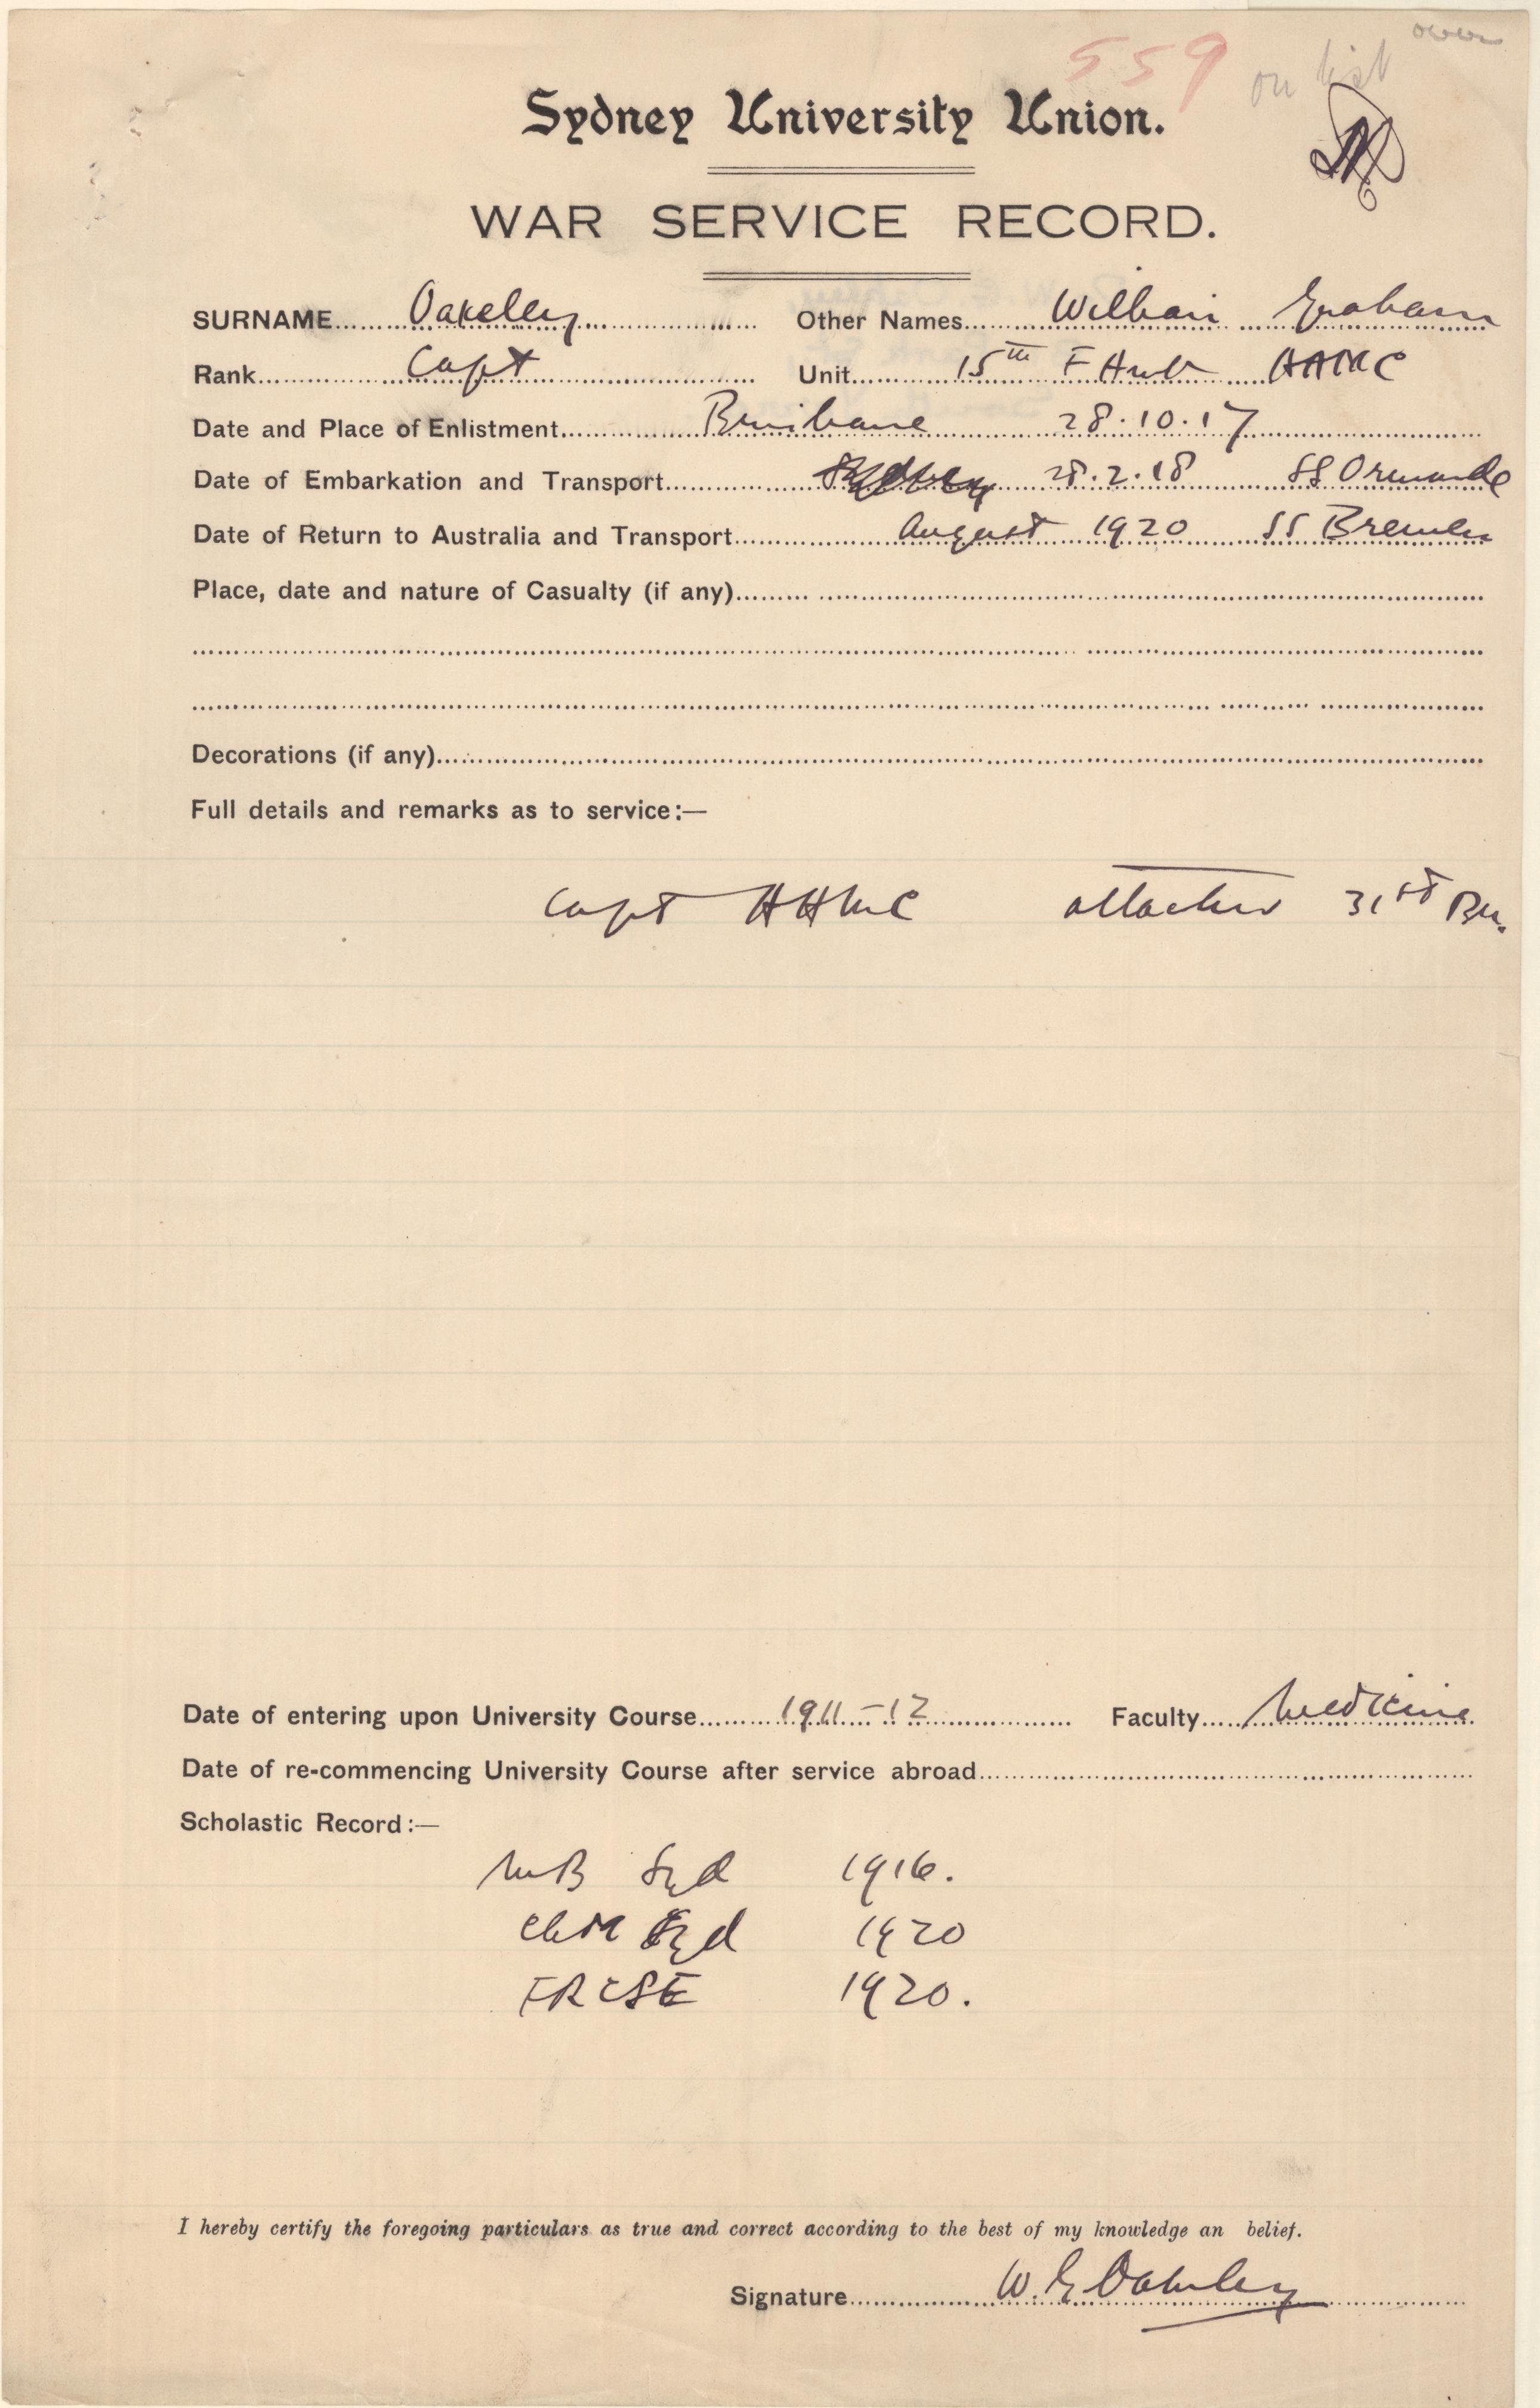 over
559 on list
Sydney University Union.
WAR SERVICE RECORD.
SURNAME Oakeley Other Names William Graham
Rank Capt Unit 15th F Amb AAMC
Date and Place of Enlistment Brisbane 28.10.17
Date of Embarkation and Transport Sydney 28.2.18 SS Ormonde
Date of Return to Australia and Transport August 1920 SS Bremen
Place, date and nature of Casualty (if any)
Decorations (if any)
Full details and remarks as to service:—
Capt AAMC attached 31st Bn.
Date of entering upon University Course 1911-12 Faculty Medicine
Date of re-commencing University Course after service abroad
Scholastic Record:—
MB Syd 1916.
ChM Syd 1920
FRCSE 1920.
I hereby certify the foregoing particulars as true and correct according to the best of my knowledge an belief.
Signature W. G Oakeley